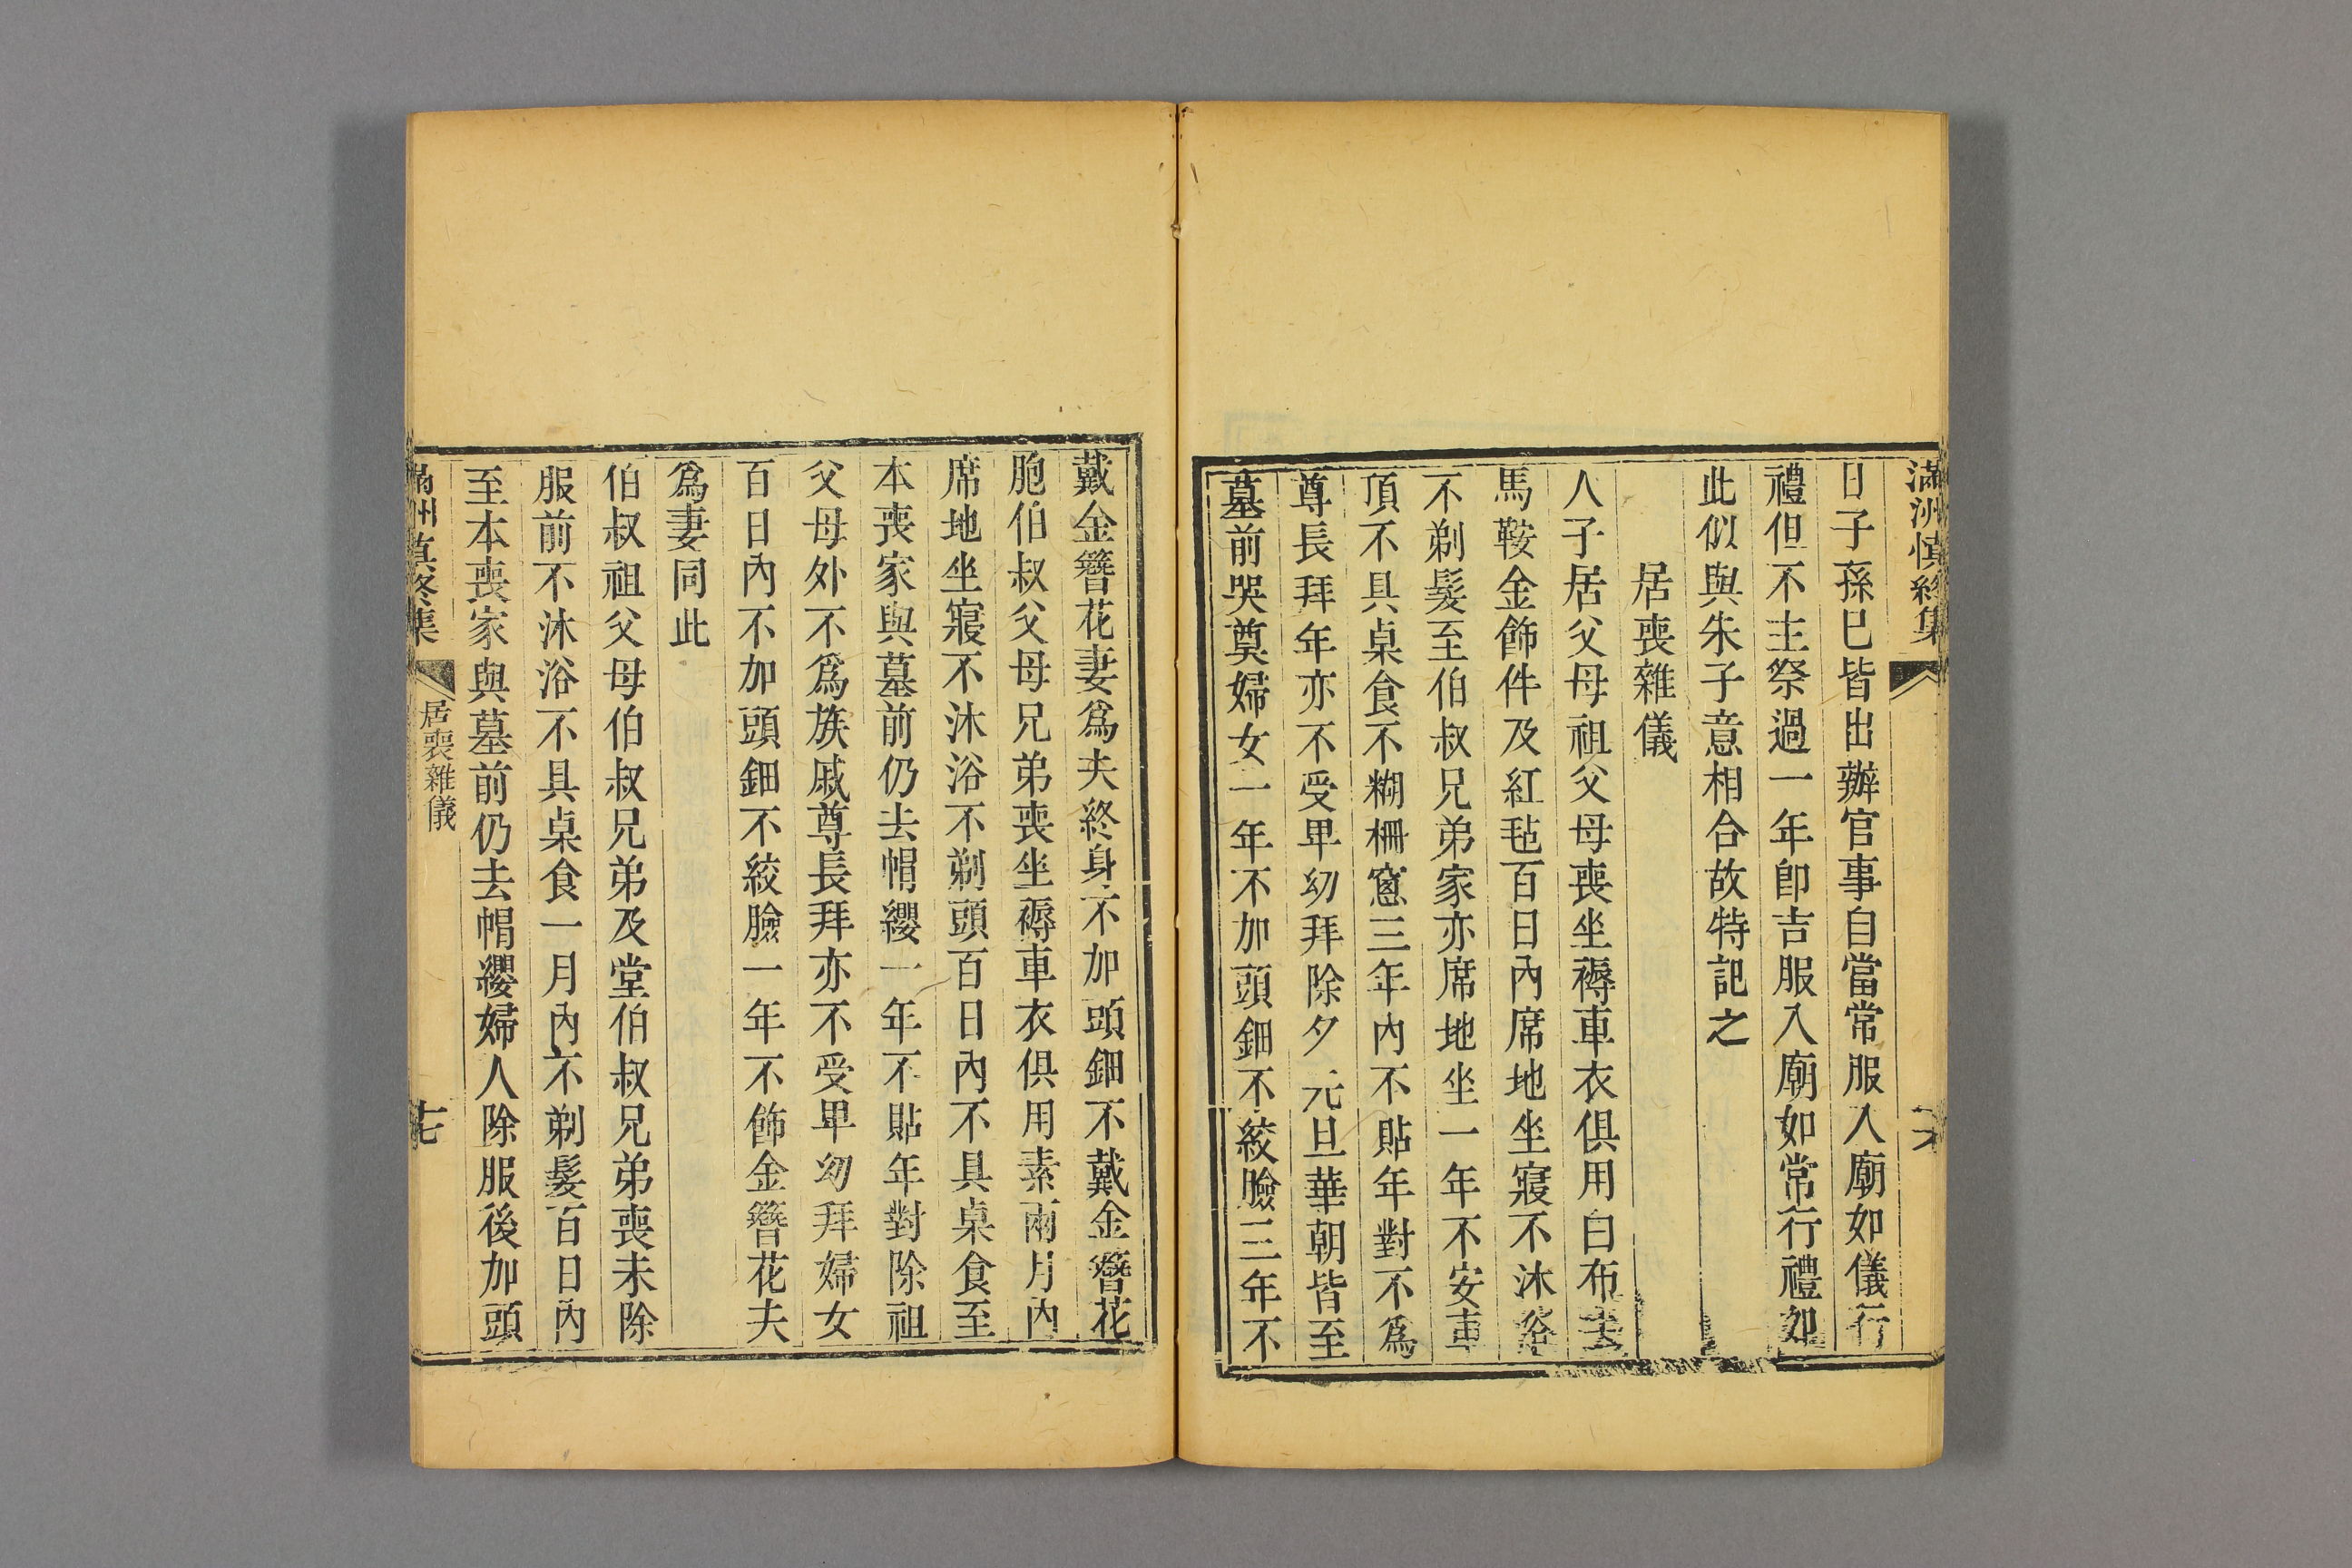 滿洲慎終集
日子孫巳皆出辦官事自當常服入廟如儀行
禮但不主祭過一年卽吉服入廟如常行禮如
此似與朱子意相合故特記之
居喪雜儀
人子居父母祖父母喪坐褥車衣俱用白布去
馬鞍金飾件及紅毡百日內席地坐寢不沐浴
不剃髮至伯叔兄弟家亦席地坐一年不安車
頂不具桌食不糊柵窻三年內不貼年對不爲
尊長拜年亦不受卑幼拜除夕元旦華朝皆至
墓前哭奠婦女一年不加頭鈿不絞臉三年不
戴金簪花妻爲夫終身不加頭鈿不戴金簪花
胞伯叔父母兄弟喪坐褥車衣俱用素兩月內
席地坐寢不沐浴不剃頭百日內不具桌食至
本喪家與墓前仍去帽纓一年不貼年對除祖
父母外不爲族戚尊長拜亦不受卑幼拜婦女
百日內不加頭鈿不絞臉一年不飾金簪花夫
爲妻同此
伯叔祖父母伯叔兄弟及堂伯叔兄弟喪未除
服前不沐浴不具桌食一月內不剃髮百日內
至本喪家與墓前仍去帽纓婦人除服後加頭
滿洲慎終集
居喪雜儀
七